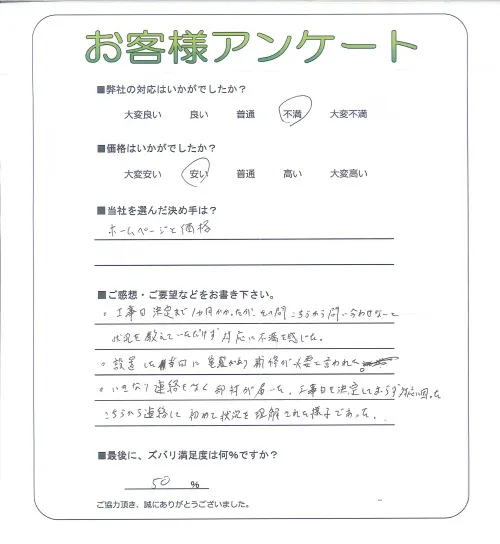 お客様アンケート
■弊社の対応はいかがでしたか？
大変良い 良い 普通 不満 大変不満
■価格はいかがでしたか？
大変安い 安い 普通 高い 大変高い
■当社を選んだ決め手は？
ホームページと価格
■ご感想・ご要望などをお書き下さい。
・工事日決定まで1ヵ月かかったが、その間こちらから問い合わせないと
状況を教えていただけず対応に不満を感じた。
・設置した当日に 補修が必要と言われた
・いきなり連絡もなく部材が届いた。工事日も決定しておらず 困った
こちらから連絡して初めて状況を理解された様子であった。
■最後に、ズバリ満足度は何%ですか？
50 %
ご協力頂き、誠にありがとうございました。